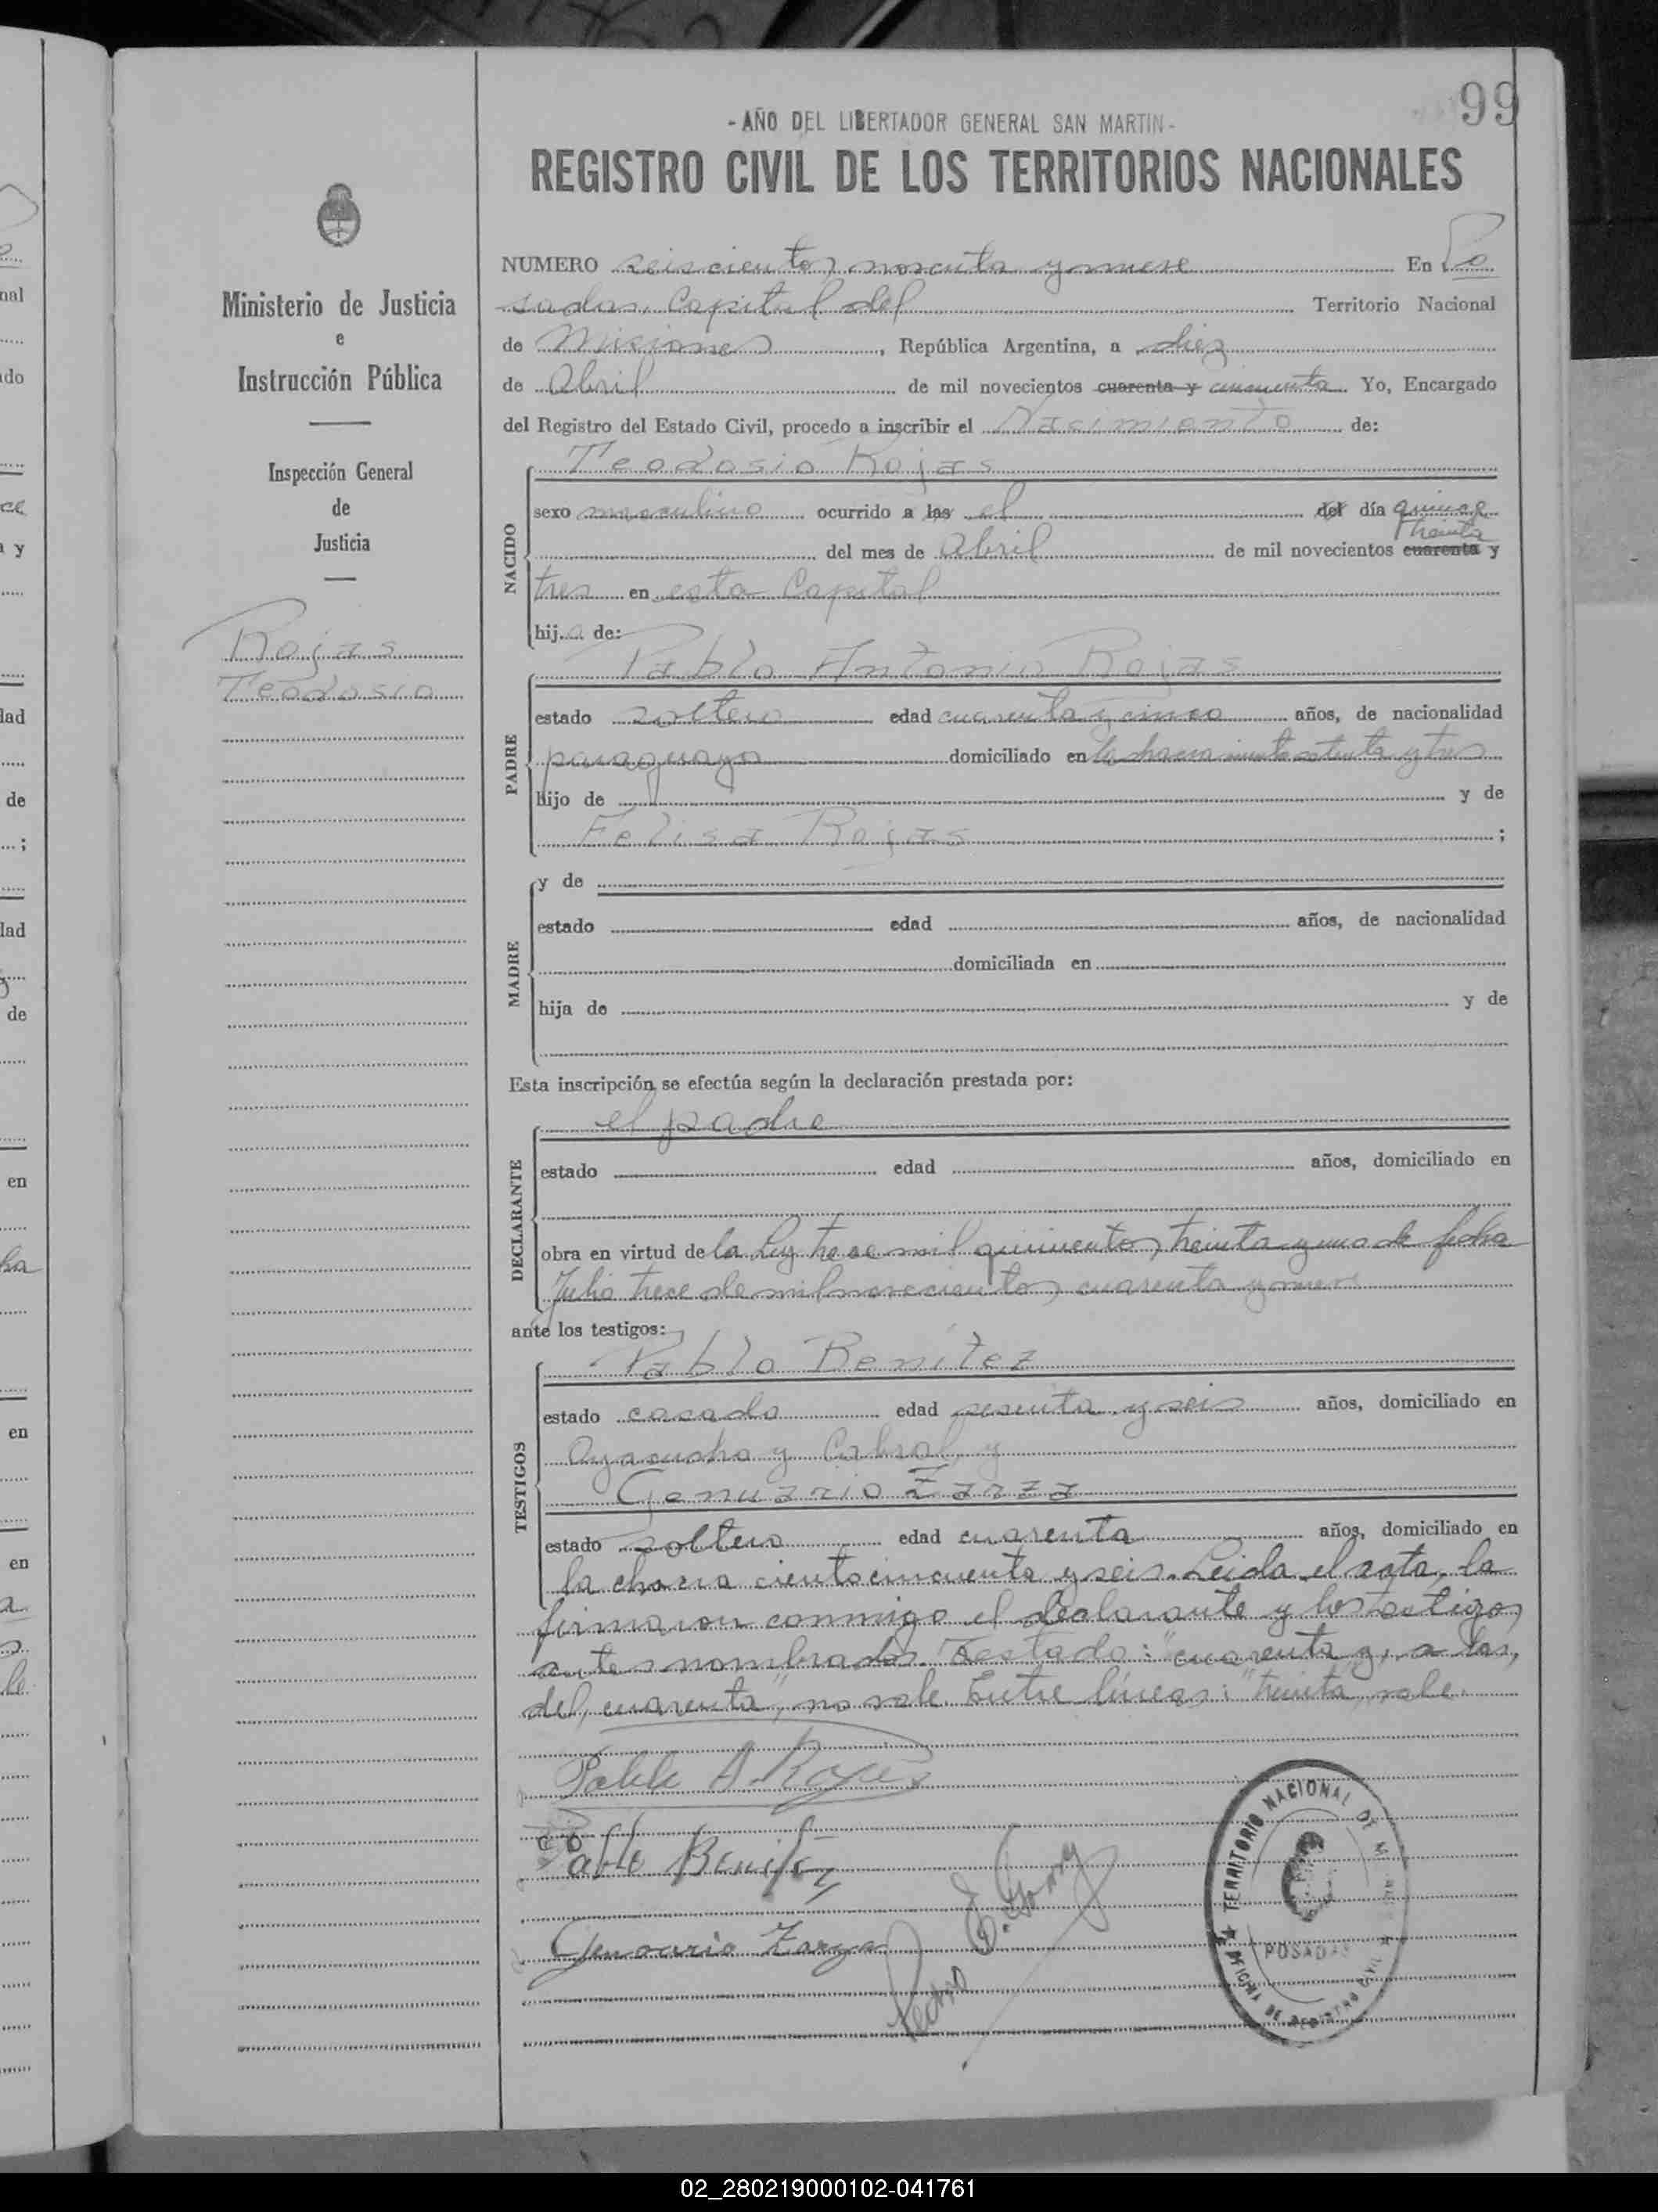 99
- AÑO DEL LIBERTADOR GENERAL SAN MARTIN -
REGISTRO CIVIL DE LOS TERRITORIOS NACIONALES
Ministerio de Justicia
e
Instrucción Pública
Inspección General
de
Justicia
Rojas
Teodosio
NUMERO seiscientos noventa y nueve En Po
sadas, Capital del Territorio Nacional
de Misiones, República Argentina, a diez
de Abril de mil novecientos cuarenta y cincuenta Yo, Encargado
del Registro del Estado Civil, procedo a inscribir el Nacimiento de:
Teodosio Rojas
NACIDO
sexo masculino ocurrido a las el del día quince
treinta
del mes de Abril de mil novecientos cuarenta y
tres en esta Capital
hijo de:
Pablo Antonio Rojas
PADRE
estado soltero edad cuarenta y cinco años, de nacionalidad
paraguayo domiciliado en la chacra ciento setenta y tres
hijo de y de
Felisa Rojas ;
MADRE
y de
estado edad años, de nacionalidad
domiciliada en
hija de y de
Esta inscripción se efectúa según la declaración prestada por:
el padre
DECLARANTE
estado edad años, domiciliado en
obra en virtud de la Ley trece mil quinientos treinta y uno de fecha
Julio trece de mil novecientos cuarenta y nueve
ante los testigos:
Pablo Benitez
TESTIGOS
estado casado edad sesenta y seis años, domiciliado en
Ayacucho y Cabral y
Genuario Zarza
estado soltero edad cuarenta años, domiciliado en
la chacra ciento cincuenta y seis. Leida el acta, la
firmaron conmigo el declarante y los testigos
antes nombrados. Testado: "cuarenta y, a las,
del, cuarenta", no vale. Entre líneas: "treinta", vale.
Pablo A. Rojas
Pablo Benitez
Genuario Zarza
Pedro E. Gomez
TERRITORIO NACIONAL DE MISIONES
POSADAS
OFICINA DE REGISTRO CIVIL
nal
do
ce
a y
lad
de
;
lad
de
en
ha
en
en
02_280219000102-041761